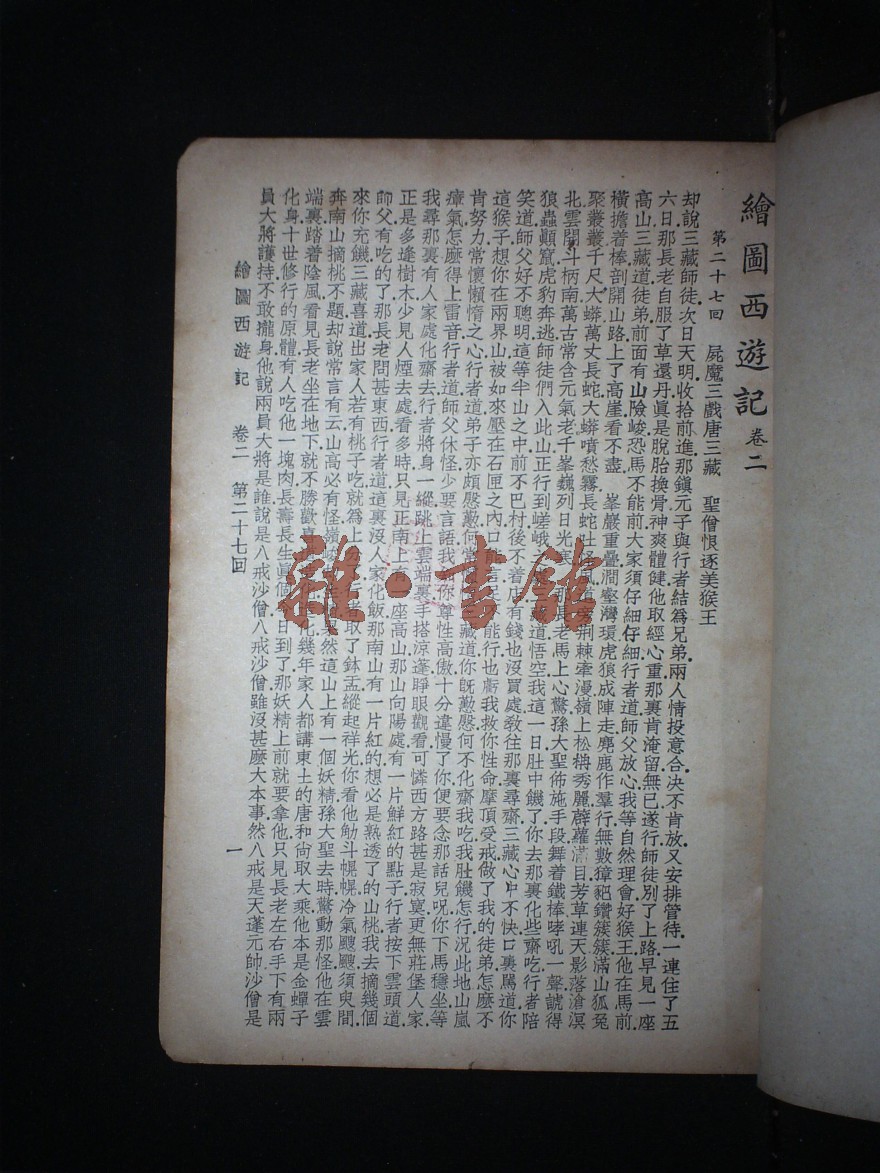 繪圖西遊記 卷二
第二十七回 屍魔三戲唐三藏 聖僧恨逐美猴王
却說三藏師徒次日天明收拾前進那鎮元子與行者結爲兄弟兩人情投意合決不肯放又安排管待一連住了五
六日那長老自服了草還丹眞是脫胎換骨神爽體健他取經心重那裏肯淹留無已遂行師徒別了上路早見一座
高山三藏道徒弟前面有山險峻恐馬不能前大家須仔細仔細行者道師父放心我等自然理會好猴王他在馬前
橫擔着棒剖開山路上了高崖看不盡 峯巖重疊澗壑灣環虎狼成陣走麂鹿作羣行無數獐豝鑽簇簇滿山狐兔
聚叢叢千尺大蟒萬丈長蛇大蟒噴愁霧長蛇吐怪風道旁荆棘牽漫嶺上松楠秀麗薜蘿滿目芳草連天影落滄溟
北雲開斗柄南萬古常含元氣老千峯巍列日光寒那長老馬上心驚孫大聖佈施手段舞着鐵棒哮吼一聲諕得
狼蟲顚竄虎豹奔逃師徒們入此山正行到嵯峨之處三藏道悟空我這一日肚中饑了你去那裏化些齋吃行者陪
笑道師父好不聰明這等半山之中前不巴村後不着店有錢也沒買處敎往那裏尋齋三藏心中不快口裏駡道你
這猴子想你在兩界山被如來壓在石匣之內口能言足不能行也虧我救你性命摩頂受戒做了我的徒弟怎麼不
肯努力常懷懶惰之心行者道弟子亦頗慇懃何常懶惰三藏道你旣懃慇何不化齋我吃我肚饑怎行況此地山嵐
瘴氣怎麼得上雷音行者道師父休怪少要言語我知你尊性高傲十分違慢了你便要念那話兒呪你下馬穩坐等
我尋那裏有人家處化齋去行者將身一縱跳上雲端裏手搭涼蓬睜眼觀看可憐西方路甚是寂寞更無莊堡人家
正是多逢樹木少見人煙去處看多時只見正南上有一座高山那山向陽處有一片鮮紅的點子行者按下雲頭道
師父有吃的了那長老問甚東西行者道這裏沒人家化飯那南山有一片紅的想必是熟透了的山桃我去摘幾個
來你充饑三藏喜道出家人若有桃子吃就爲上分行者取了鉢盂縱起祥光你看他觔斗幌幌冷氣颼颼須臾間
奔南山摘桃不題却說常言有云山高必有怪嶺峻 果然這山上有一個妖精孫大聖去時驚動那怪他在雲
端裏踏着陰風看見長老坐在地下就不勝歡喜 幾年家人都講東土的唐和尙取大乘他本是金蟬子
化身十世修行的原體有人吃他一塊肉長壽長生眞個今日到了那妖精上前就要拿他只見長老左右手下有兩
員大將護持不敢攏身他說兩員大將是誰說是八戒沙僧八戒沙僧雖沒甚麼大本事然八戒是天蓬元帥沙僧是
繪圖西遊記 卷二 第二十七回 一
雜·書館